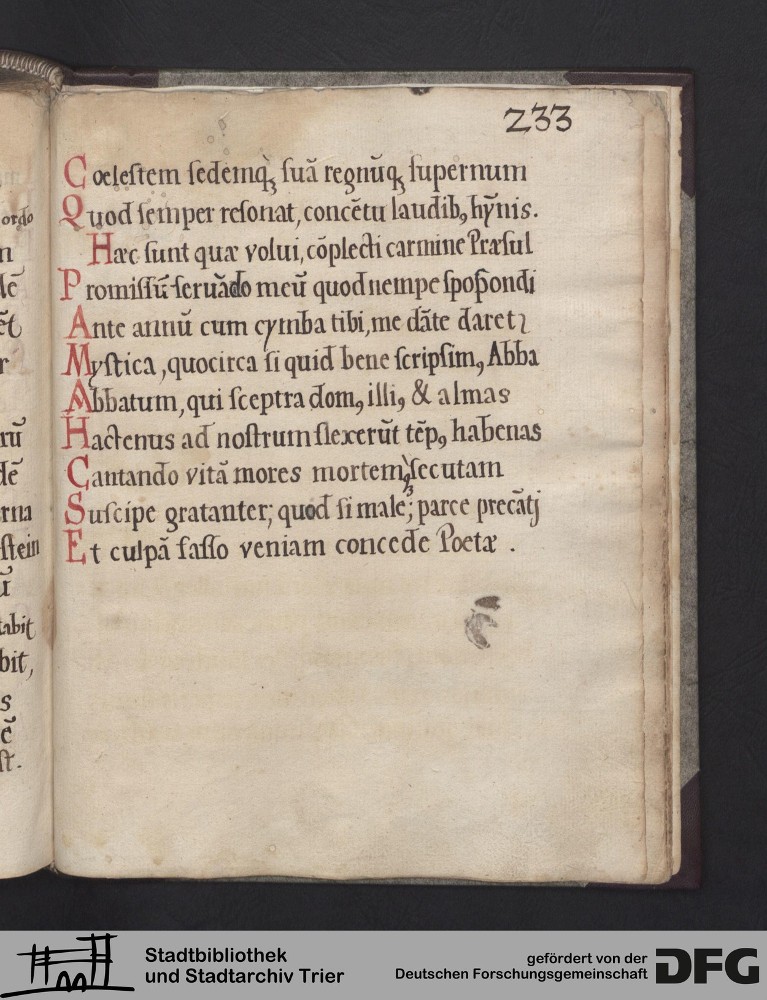 233
Coelestem sedemq̨ suā regnūq̨ supernum
Quod semper resonat, concētu laudibꝰ hȳnis.
Hæc sunt quæ volui, cōplecti carmine Præsul
Promissū seruādo meū quod nempe spopondi
Ante annū cum cymba tibi, me dāte daretꝛ
Mystica, quocirca si quid bene scripsimꝰ Abba
Abbatum, qui sceptra domꝰ illiꝰ & almas
Hactenus ad nostrum flexerūt tēpꝰ habenas
Cantando vitā mores mortemq̨ secutam
Suscipe gratanter; quod si male; parce precātj
Et culpā fasso veniam concede Poetæ .
ordo
rū
rna
stein
tabit
bit,
Stadtbibliothek
und Stadtarchiv Trier
gefördert von der
Deutschen Forschungsgemeinschaft
DFG